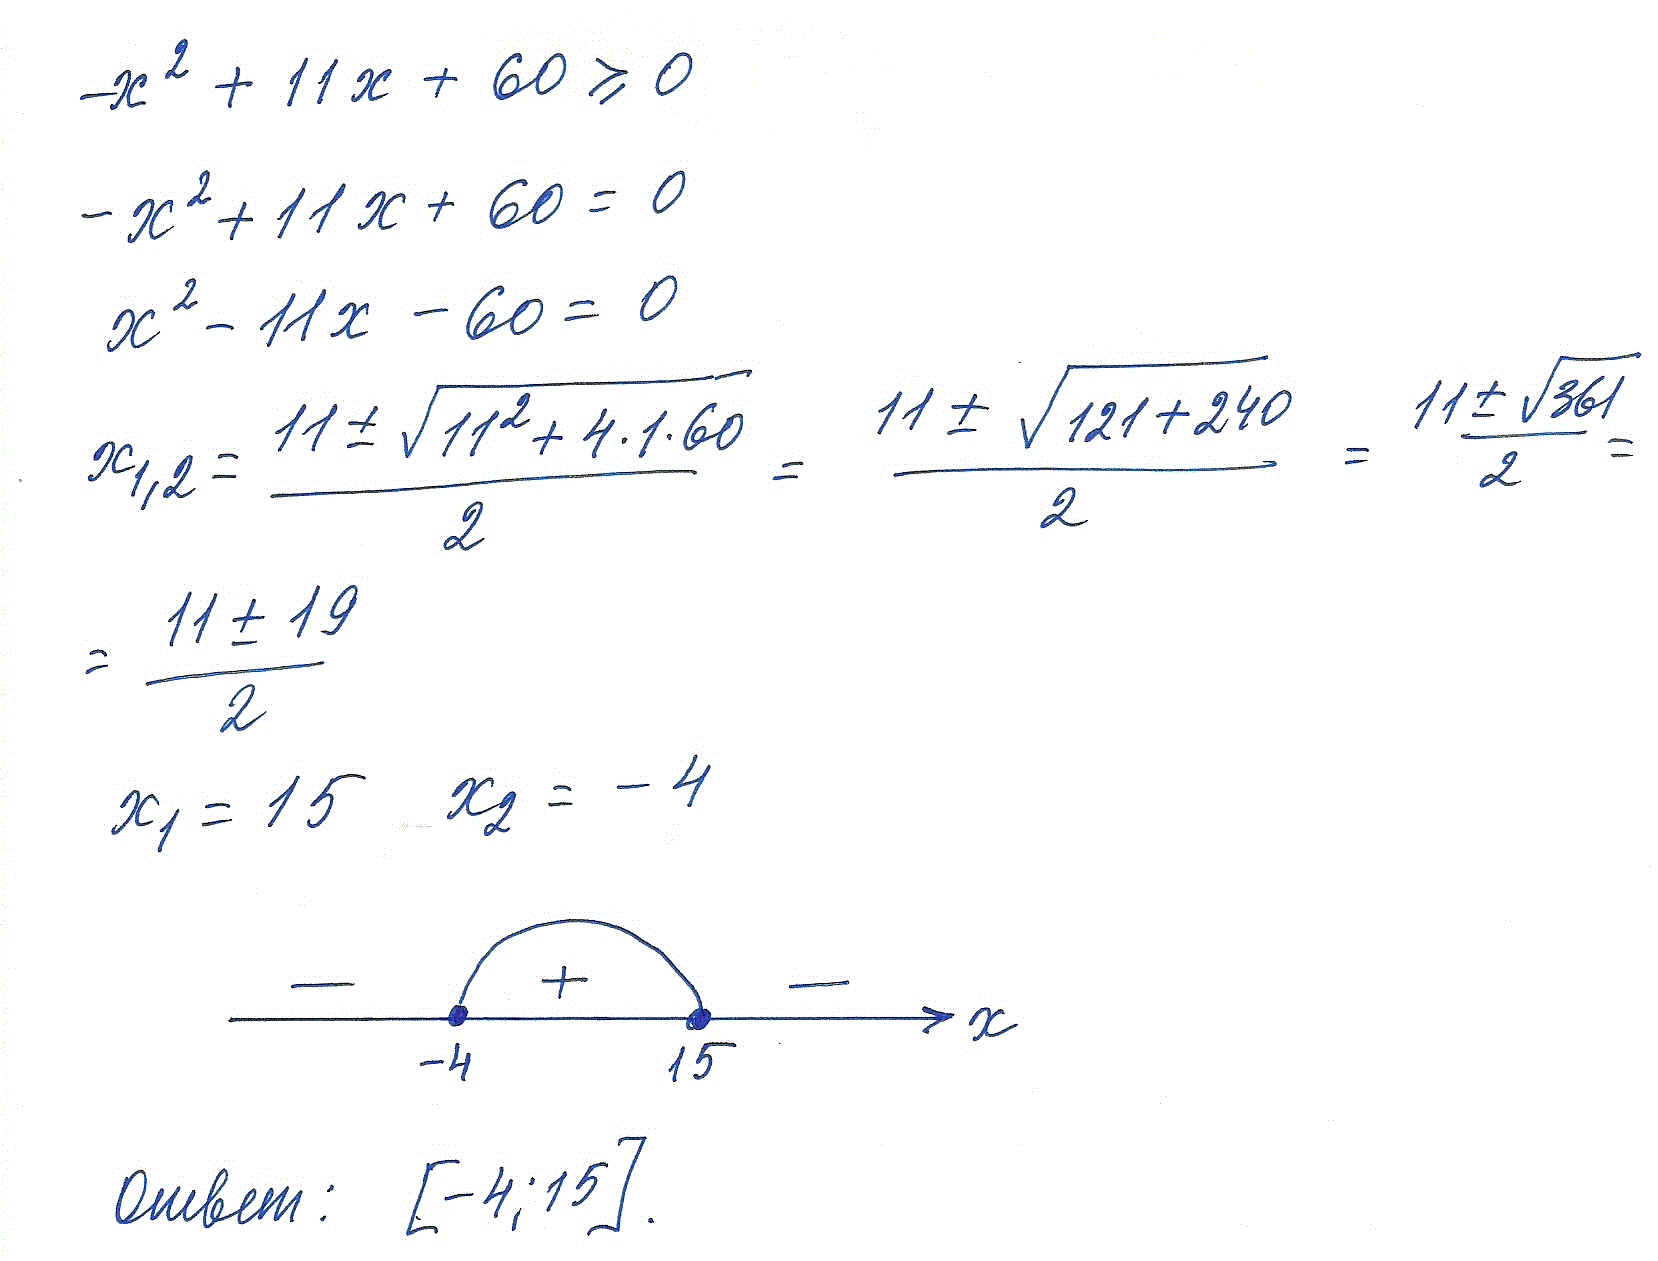 -x² + 11x + 60 ⩾ 0
-x² + 11x + 60 = 0
x² - 11x - 60 = 0
x₁,₂ = (11 ± √(11² + 4·1·60))/2 = (11 ± √(121 + 240))/2 = (11 ± √361)/2 =
= (11 ± 19)/2
x₁ = 15 x₂ = -4
— + —
-4 15 x
Ответ: [-4; 15].